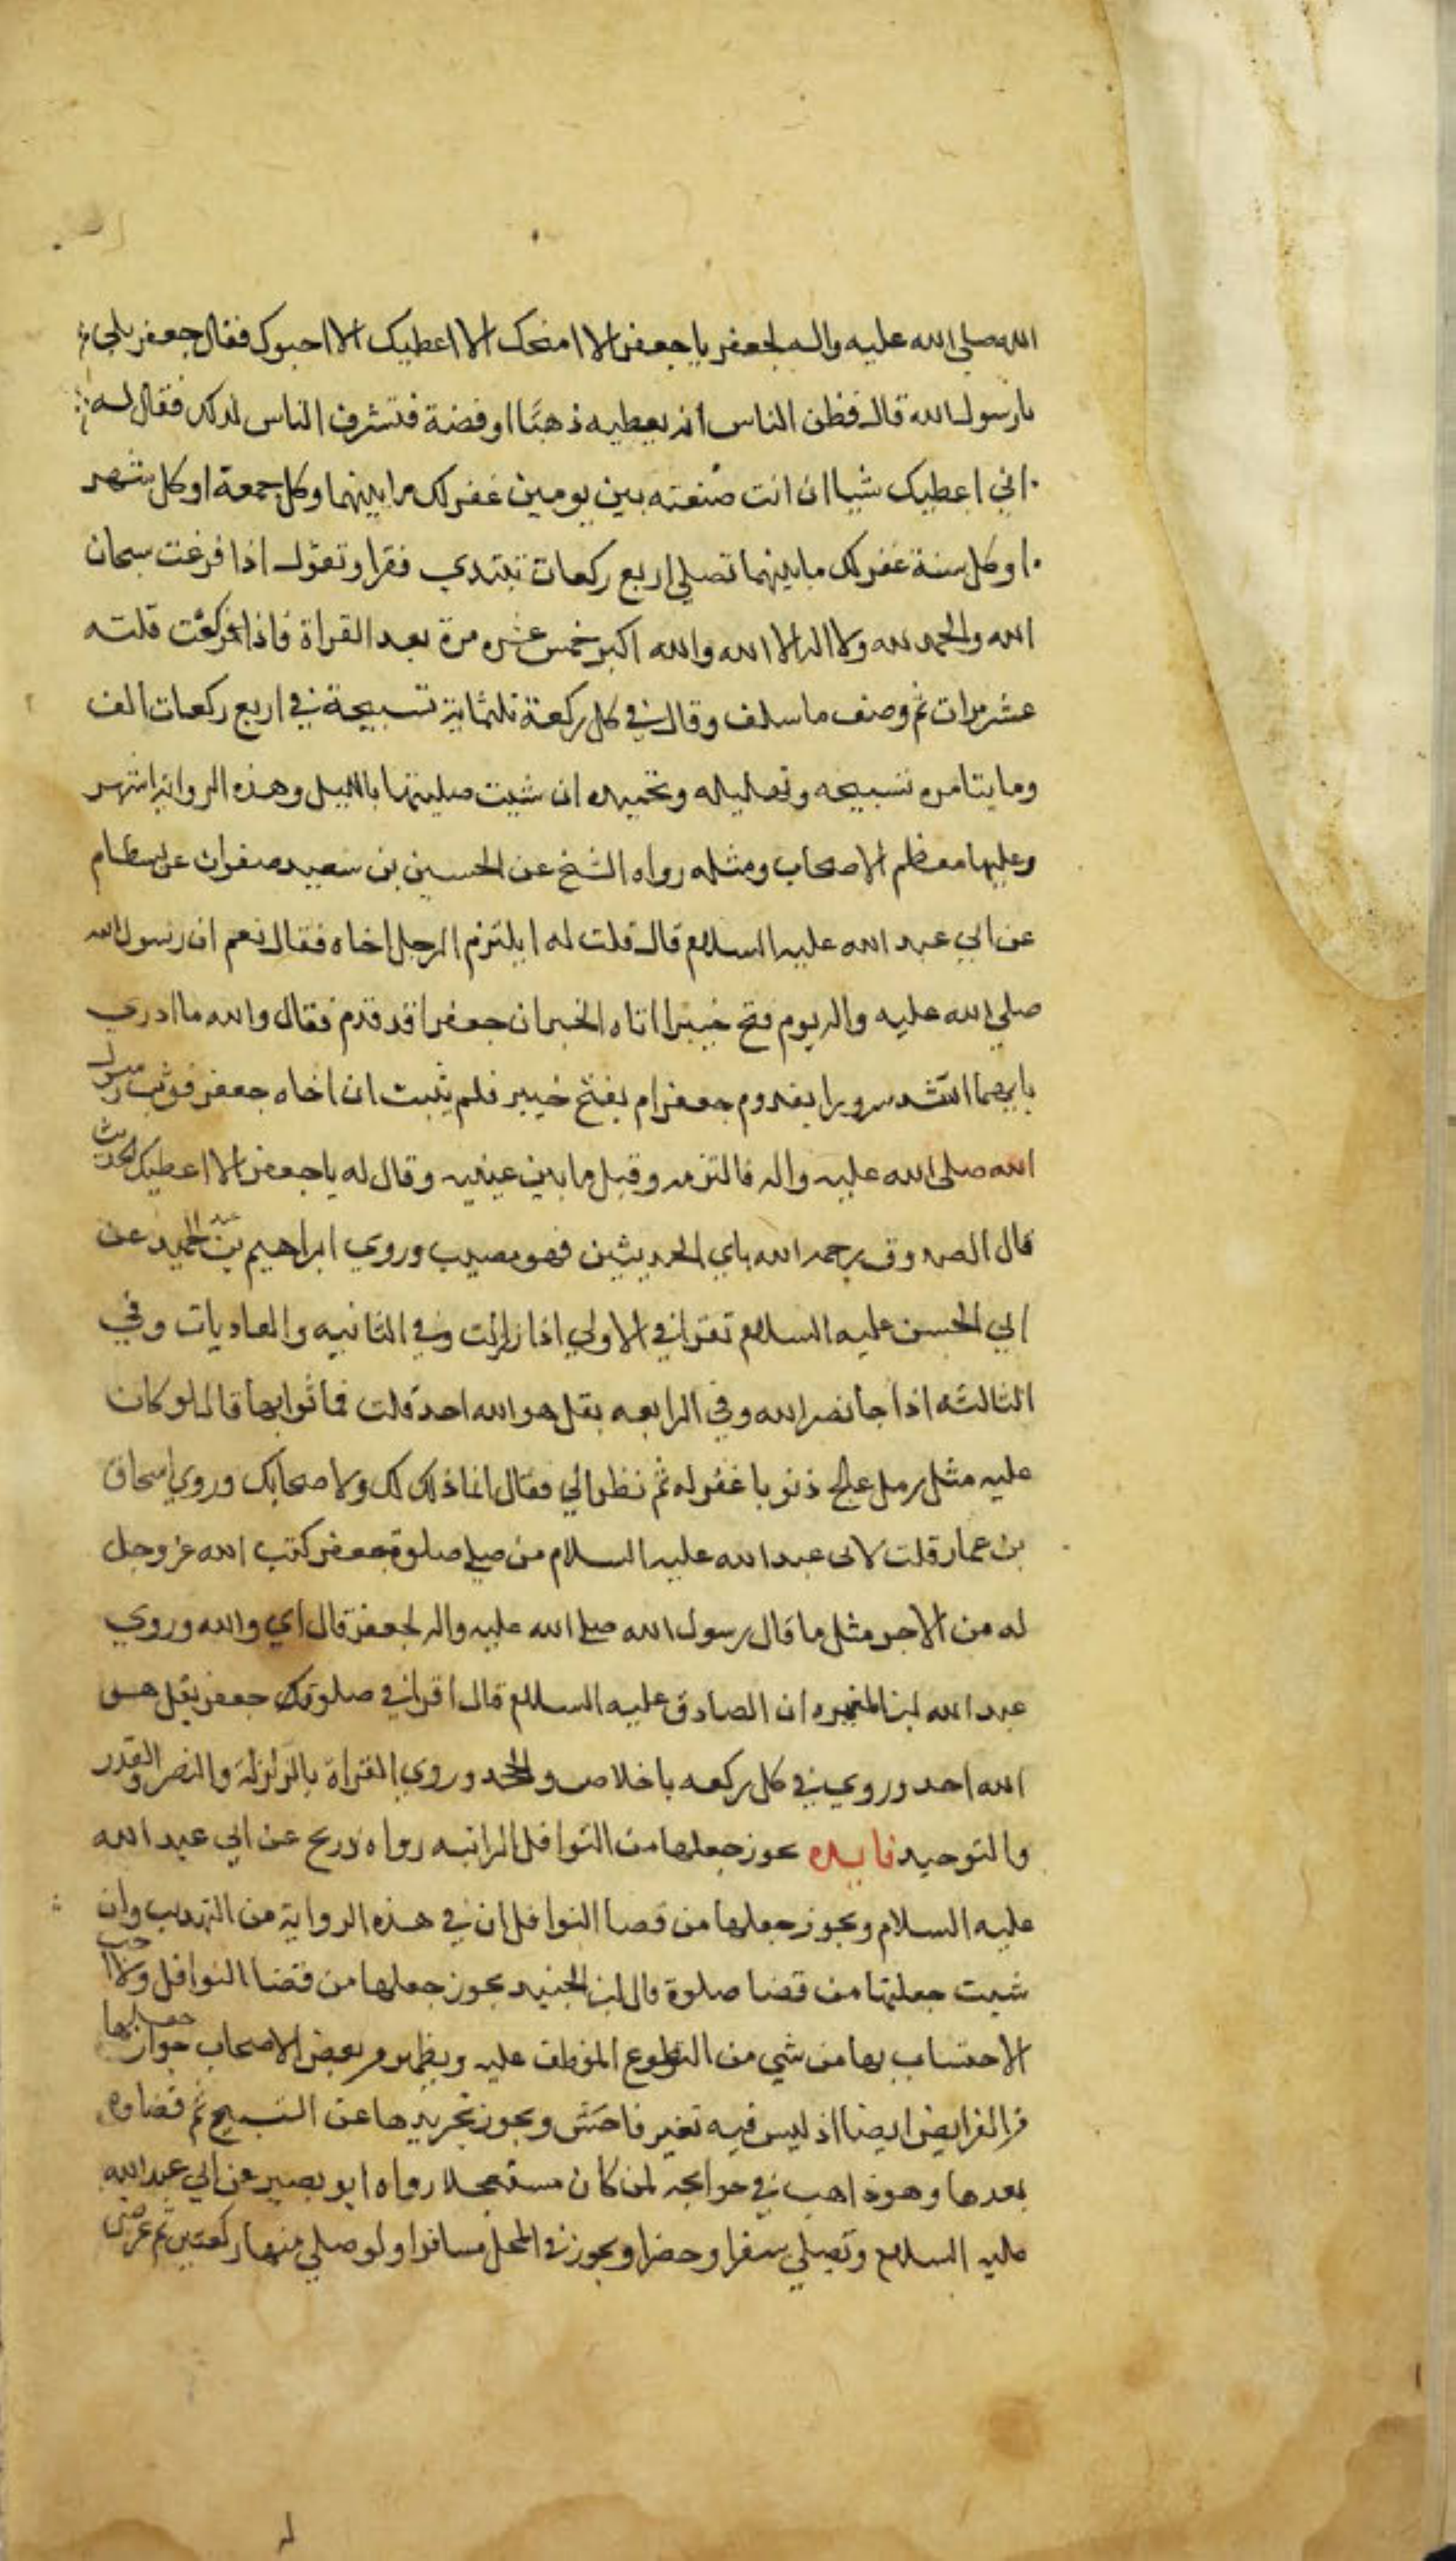 الله صلى الله عليه واله لجعفر يا جعفر الا امنحك الا اعطيك الا احبوك فقال جعفر بلى
يا رسول الله قال فظن الناس انه يعطيه ذهبًا او فضة فتشرف الناس لذلك فقال له
اني اعطيك شيا ان انت صنعته بين يومين غفر لك ما بينهما وكل جمعة او كل شهر
او كل سنة غفر لك ما بينهما تصلي اربع ركعات تبتدي فتقرا وتقول اذا فرغت سبحان
الله والحمد لله ولا اله الا الله والله اكبر خمس عشره مرة بعد القراة فاذا ركعت قلته
عشر مرات ثم وصف ما سلف وقال في كل ركعة ثلثماية تسبيحة في اربع ركعات الف
ومايتا مره تسبيحه وتهليله وتحميده ان شيت صليتها بالليل وهذه الرواية اشهر
وعليها معظم الاصحاب ومثله رواه الشيخ عن الحسين بن سعيد صفوان عن بسطام
عن ابي عبد الله عليه السلام قال قلت له ايلتزم الرجل اخاه فقال نعم ان رسول الله
صلي الله عليه واله يوم فتح خيبر اتاه الخبر ان جعفرا قد قدم فقال والله ما ادري
بايهما اشد سرورا بقدوم جعفر ام بفتح خيبر فلم يثبت ان اخاه جعفر فوثب رسول
الله صلى الله عليه واله فالتزمه وقبل ما بين عينيه وقال له يا جعفر الا اعطيك الحديث
قال الصدوق رحمه الله باي الحديثين فهو مصيب وروي ابراهيم بن عبد الحميد عن
ابي الحسن عليه السلام تقرا في الاولي اذا زلزلت وفي الثانيه والعاديات وفي
الثالثه اذا جا نصر الله وفي الرابعه بقل هو الله احد قلت فما ثوابها قال لو كان
عليه مثل رمل عالج ذنوبا غفر له ثم نظر الي فقال انما ذلك لك ولاصحابك وروي اسحاق
بن عمار قلت لابى عبد الله عليه السلام من صلى صلوة جعفر كتب الله عز وجل
له من الاجر مثل ما قال رسول الله صلى الله عليه واله لجعفر قال اي والله وروي
عبد الله ابن المغيره ان الصادق عليه السلام قال اقرا في صلوتك جعفر بقل هو
الله احد وروي في كل ركعه باخلاص والجحد وروي القراة بالزلزلة والنصر والقدر
والتوحيد فايده يجوز جعلها من النوافل الراتبه رواه ذريح عن ابي عبد الله
عليه السلام ويجوز جعلها من قضا النوافل ان في هذه الرواية من التهذيب وان
شيت جعلتها من قضا صلوة قال ابن الجنيد يجوز جعلها من قضا النوافل ولا احب
الاحتساب بها من شي من التطوع الموظف عليه ويظهر من بعض الاصحاب جواز جعلها
من الفرايض ايضا اذ ليس فيه تغير فاحش ويجوز تجريدها عن التسبيح ثم قضاوه
بعدها وهو ذاهب في حوائجه لمن كان مستعجلا رواه ابو بصير عن ابي عبد الله
عليه السلام وتصلي سفرا وحضرا ويجوز في المحمل مسافرا ولو صلي منها ركعتين ثم عرض